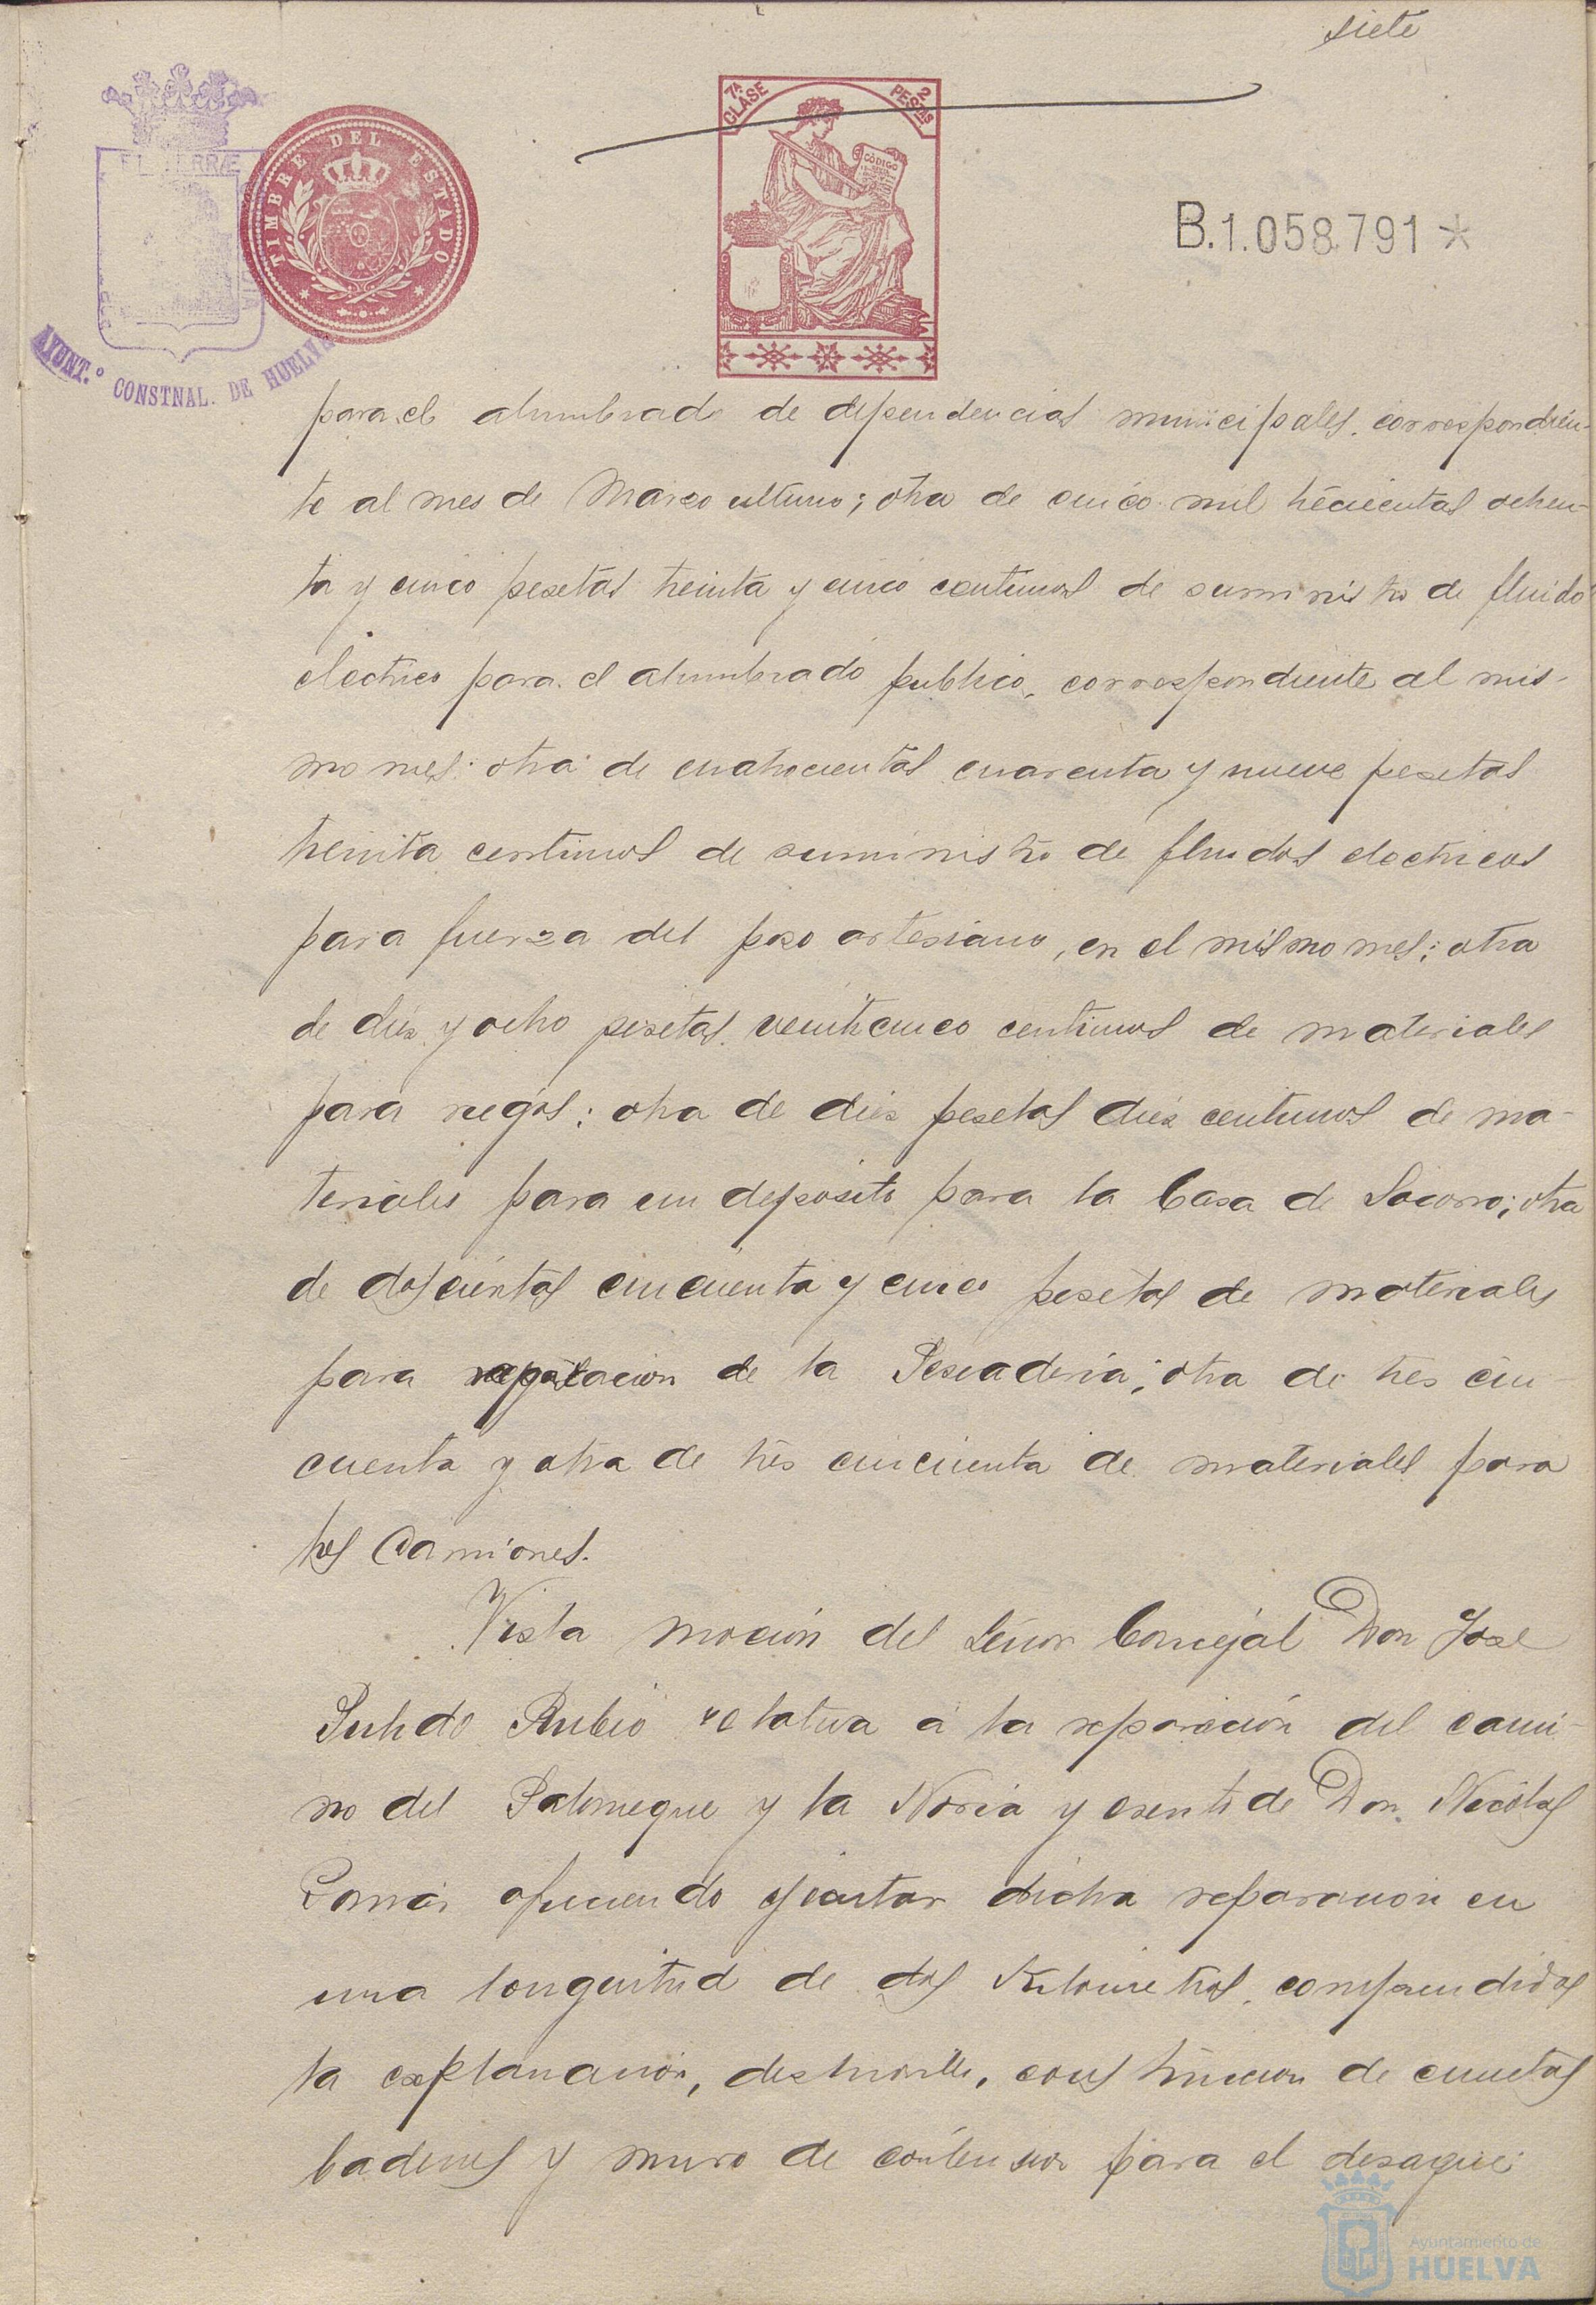 siete
7ª CLASE
2 PESETAS
CÓDIGO
TIMBRE DEL ESTADO
AYUNT.º CONSTNAL. DE HUELVA
B.1.058.791*
para el alumbrado de dependencias municipales, correspondien-
te al mes de Marzo ultimo; otra de cinco mil trecientas ochen-
ta y cinco pesetas treinta y cinco centimos de suministro de fluido
electrico para el alumbrado publico, correspondiente al mis-
mo mes: otra de cuatrocientas cuarenta y nueve pesetas
treinta centimos de suministro de fluidos electricos
para fuerza del poso artesiano, en el mismo mes; otra
de dies y ocho pesetas veinticinco centimos de materiales
para riegos; otra de dies pesetas dies centimos de ma-
teriales para un deposito para la Casa de Socorro; otra
de doscientas cincuenta y cinco pesetas de materiales
para reparacion de la Pescaderia; otra de tres cin-
cuenta y otra de tres cincuenta de materiales para
los Camiones.
Vista moción del Señor Concejal Don José
Pulido Rubio relativa a la reparación del cami-
no del Palomeque y la Noria y escrito de Don Nicolas
ofreciendo ejecutar dicha reparacion en
una longuitud de dos Kilometros, comprendidos
la explanación, desmonte, construccion de cunetas
badenes y muro de contension para el desague
Ayuntamiento de
HUELVA